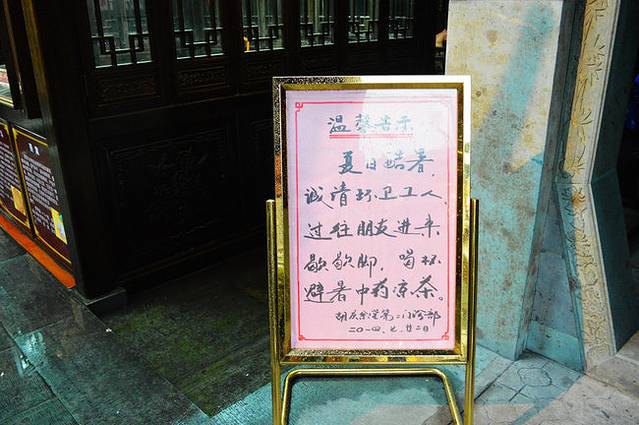 温馨告示
夏日酷暑，
诚请环卫工人、
过往朋友进来
歇歇脚，喝杯
避暑中药凉茶。
胡庆余堂第二门诊部
二〇一四.七.廿二日